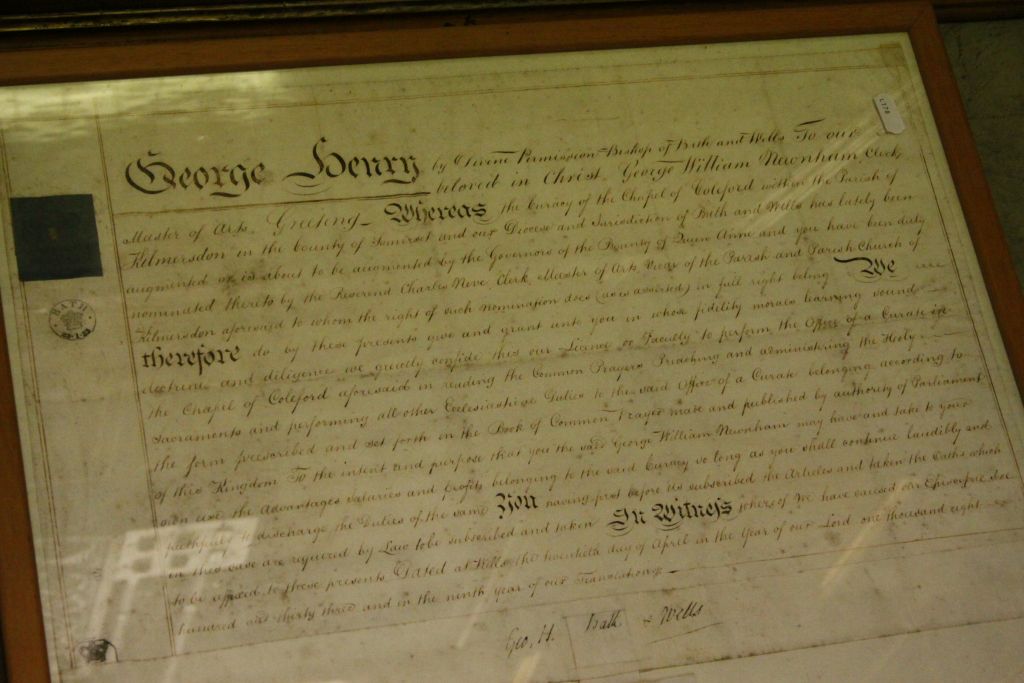 George Henry by Divine Permission Bishop of Bath and Wells To our
beloved in Christ George William Newnham Clerk,
Master of Arts, Greeting Whereas the Curacy of the Chapel of Coleford within the Parish of
Kilmersdon in the County of Somerset and our Diocese and Jurisdiction of Bath and Wells has lately been
augmented or is about to be augmented by the Governors of the Bounty of Queen Anne and you have been duly
nominated thereto by the Reverend Charles Clerk Master of Arts Vicar of the Parish and Parish Church of
Kilmersdon aforesaid to whom the right of such nomination does (as is asserted) in full right belong We
therefore do by these presents give and grant unto you in whose fidelity morals learning sound
doctrine and diligence we greatly confide this our Licence or Faculty to perform the Office of a Curate in
the Chapel of Coleford aforesaid in reading the Common Prayers Preaching and administering the Holy
Sacraments and performing all other Ecclesiastical Duties to the said Office of a Curate belonging according to
the form prescribed and set forth in the Book of Common Prayer made and published by authority of Parliament
of this Kingdom To the intent and purpose that you the said George William Newnham may have and take to your
own use the Advantages Salaries and Profits belonging to the said Curacy so long as you shall continue laudibly and
faithfully to discharge the Duties of the same You having first before us subscribed the Articles and taken the Oaths which
in this case are required by Law to be subscribed and taken In Witness whereof We have caused our Episcopal Seal
to be affixed to these presents Dated at Wells the twentieth day of April in the Year of our Lord one thousand eight
hundred and thirty three and in the ninth year of our Translation
Geo. H. Bath & Wells
BATH